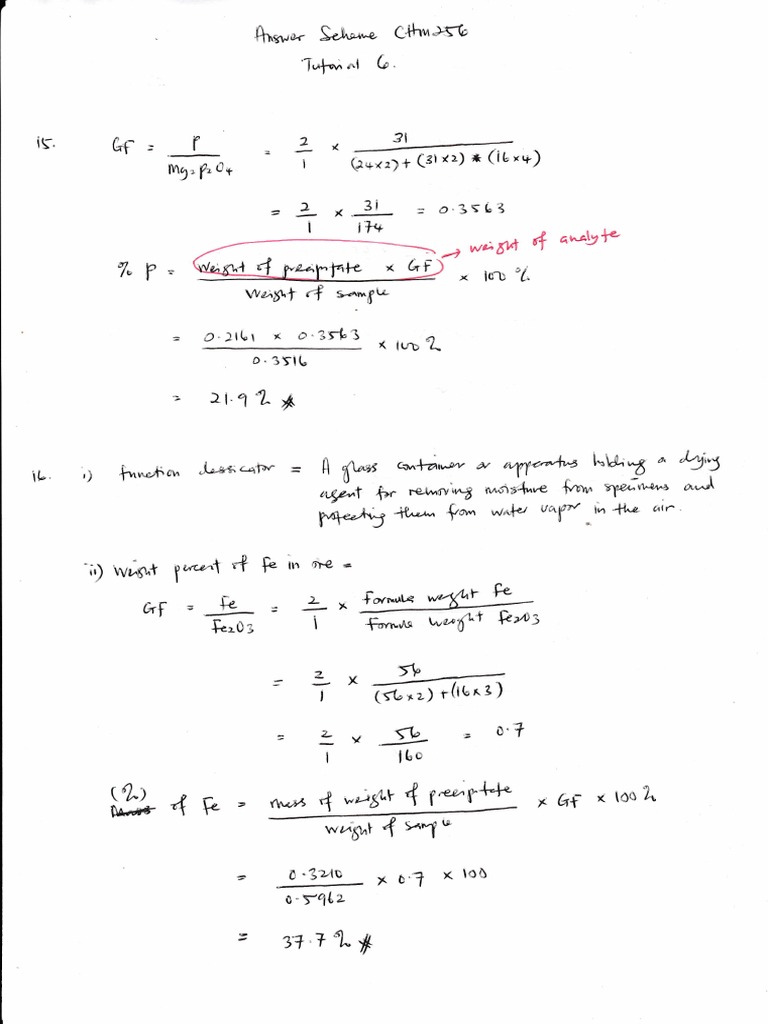 Answer Scheme CHM256
Tutorial 6.
15. GF = P / Mg2P2O4 = 2/1 × 31 / (24×2)+(31×2)*(16×4)
= 2/1 × 31/174 = 0.3563
% P = weight of precipitate × GF / weight of sample × 100 % → weight of analyte
= 0.2161 × 0.3563 / 0.3516 × 100 %
= 21.9 % *
16. i) function dessicator = A glass container or apparatus holding a drying
agent for removing moisture from specimens and
protecting them from water vapor in the air.
ii) Weight percent of Fe in ore =
GF = Fe / Fe2O3 = 2/1 × formula weight Fe / formula weight Fe2O3
= 2/1 × 56 / (56×2)+(16×3)
= 2/1 × 56/160 = 0.7
(%) of Fe = mass of weight of precipitate / weight of sample × GF × 100 %
= 0.3210 / 0.5962 × 0.7 × 100
= 37.7 % *